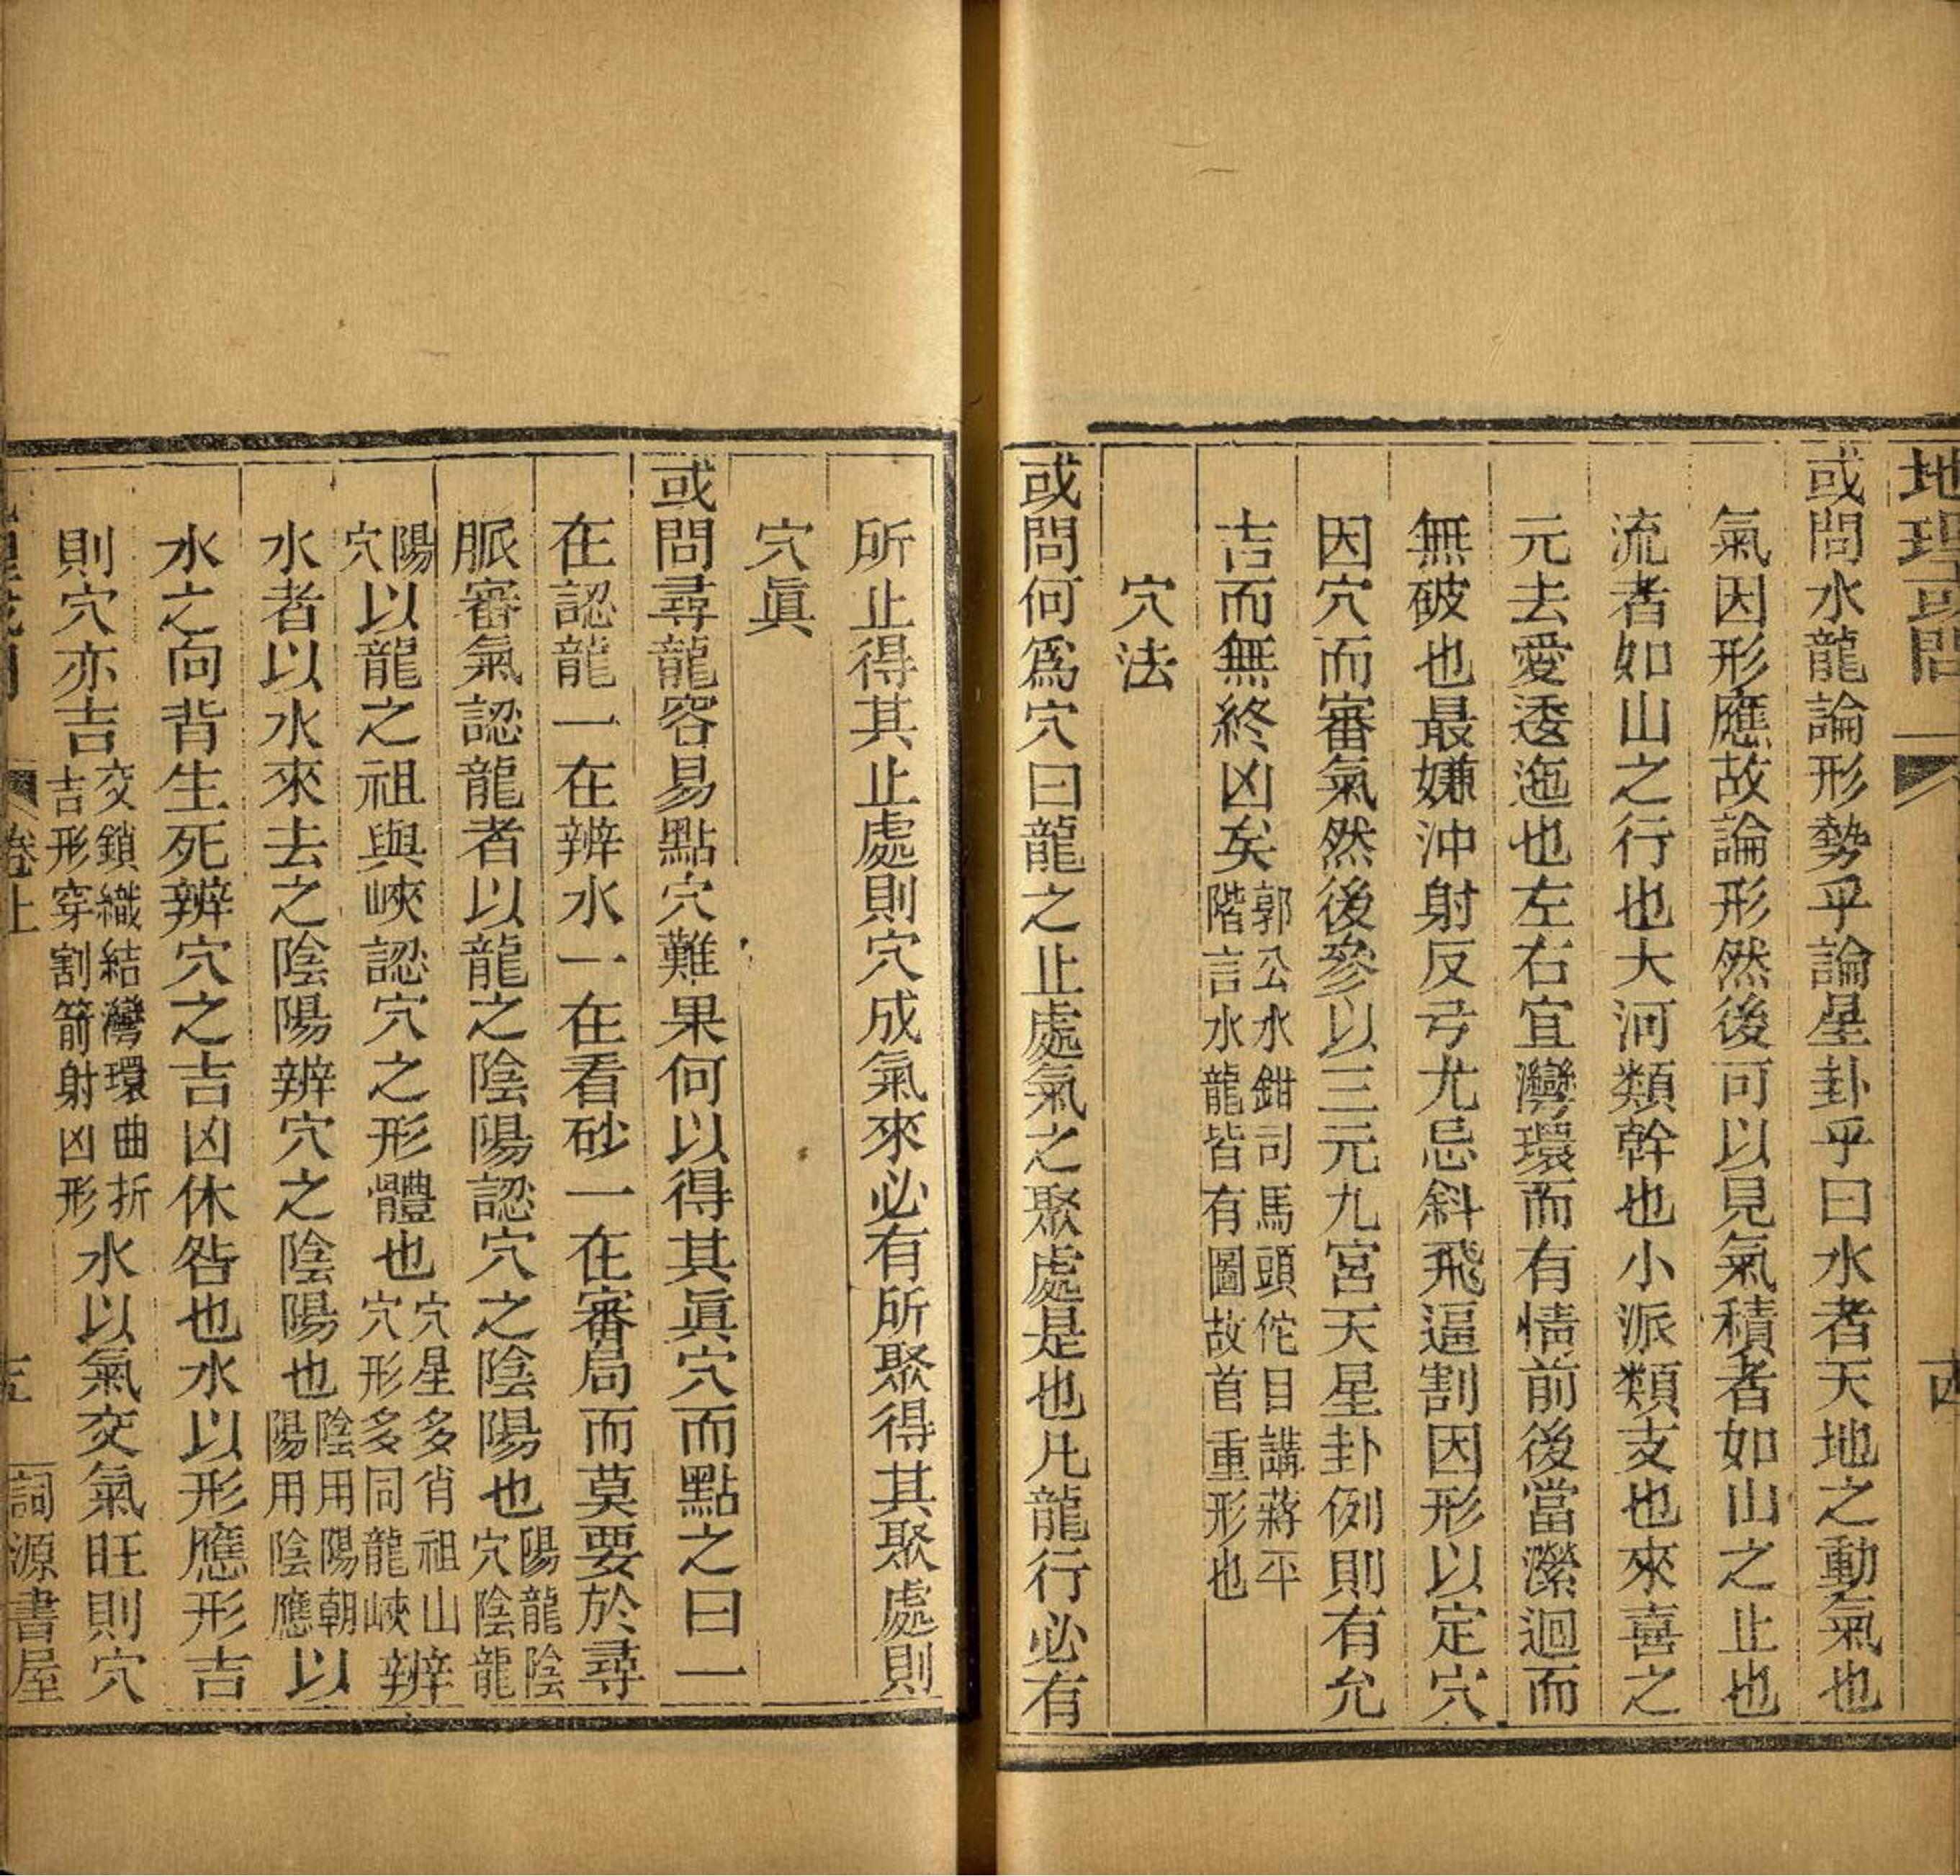 地理或問
或問水龍論形勢乎論星卦乎曰水者天地之動氣也
氣因形應故論形然後可以見氣積者如山之止也
流者如山之行也大河類幹也小派類支也來喜之
元去愛逶迤也左右宜灣環而有情前後當瀠迴而
無破也最嫌沖射反弓尤忌斜飛逼割因形以定穴
因穴而審氣然後參以三元九宮天星卦例則有允
吉而無終凶矣郭公水鉗司馬頭佗目講蔣平階言水龍皆有圖故首重形也
穴法
或問何爲穴曰龍之止處氣之聚處是也凡龍行必有
所止得其止處則穴成氣來必有所聚得其聚處則
穴眞
或問尋龍容易點穴難果何以得其眞穴而點之曰一
在認龍一在辨水一在看砂一在審局而莫要於尋
脈審氣認龍者以龍之陰陽認穴之陰陽也陽龍陰穴陰龍
陽穴以龍之祖與峽認穴之形體也穴星多肖祖山穴形多同龍峽辨
水者以水來去之陰陽辨穴之陰陽也陰用陽朝陽用陰應以
水之向背生死辨穴之吉凶休咎也水以形應形吉
則穴亦吉交鎖織結灣環曲折吉形穿割箭射凶形水以氣交氣旺則穴
卷上 詞源書屋